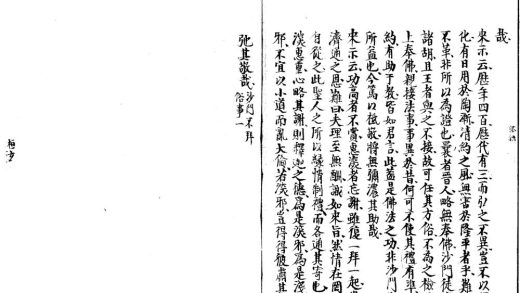 哉
來示云歷年四百歷代有三而弘之不異豈不以
化有日用於陶漸清約之風無害於隆平者乎難
不革非所以為證也曩者晉人略無奉佛沙門徒
諸胡且王者與之不接故可任其方俗不為之檢
上奉佛親接法事事異於昔何可不使其禮有準
約有助于教皆如君言此蓋是佛法之功非沙門
所益也今篤以祗敬將無彌濃其助哉
來示云功高者不賞惠深者忘謝雖復一拜一起豈
濟通之恩難曰夫理至無酬誠如來旨然情在罔
自從之此聖人之所以緣情制禮而各通其寄也
深惠重必略其謝則釋迦之德為是深邪為是淺
邪不宜以小道而亂大倫若深邪豈得得彼肅其
弛其敬哉 沙門不拜
俗事一